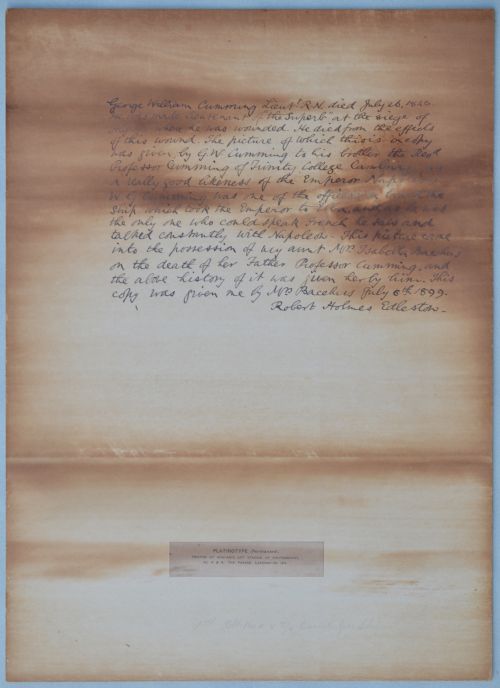 George William Cumming Lieut. R.N. died July 26. 18
He was made Lieutenant of the "Superb" at the siege of
where he was wounded. He died from the effects
of this wound. The picture of which this is a copy
was given by G.W Cumming to his brother the Revd
Professor Cumming of Trinity College Cambridge, as
a really good likeness of the Emperor Napoleon
W G Cumming was one of the officers on board the
Ship which took the Emperor to Elba, and as he was
the only one who could speak French he was and
talked constantly with Napoleon. This picture came
into the possession of my aunt Mrs Isabella Bacchus
on the death of her Father Professor Cumming, and
the above history of it was given her by him. This
copy was given me by Mrs Bacchus July 6th 1899.
Robert Holmes Edleston.
PLATINOTYPE (Permanent).